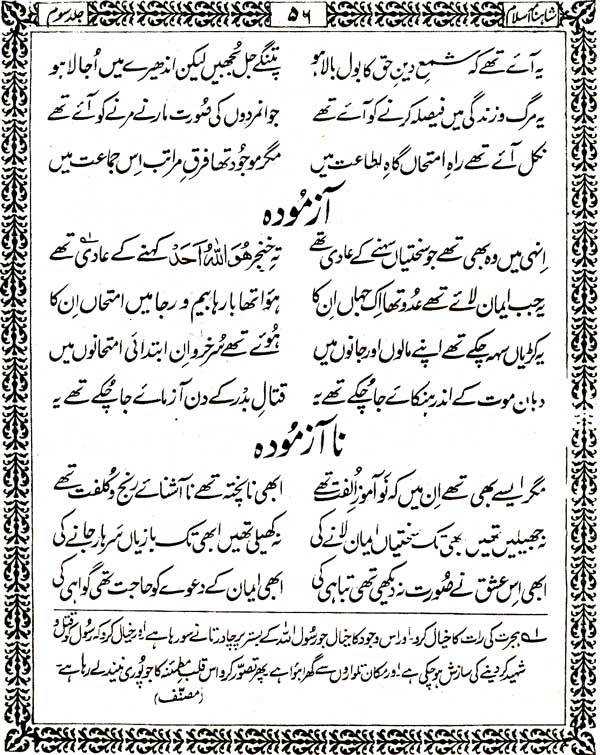 شاہنامۂ اسلام ۵۶ جلد سوم
یہ آئے تھے کہ شمعِ دینِ حق کا بول بالا ہو پتنگے جل بُجھیں لیکن اندھیرے میں اُجالا ہو
یہ مرگ و زندگی میں فیصلہ کرنے کو آئے تھے جوانمردوں کی صُورت مارنے مرنے کو آئے تھے
نکل آئے تھے راہِ امتحاں گاہِ اطاعت میں مگر موجُود تھا فرقِ مراتب اِس جماعت میں
آزمُودہ
اِنہی میں وہ بھی تھے جو سختیاں سہنے کے عادی تھے تہِ خنجر ھُوَ اللّٰہُ اَحَدْ کہنے کے عادی تھے
یہ جب ایمان لائے تھے عدُو تھا اِک جہاں اِن کا ہُوا تھا بارہا بیم و رجا میں امتحاں اِن کا
یہ کڑیاں سہہ چکے تھے اپنے مالوں اور جانوں میں ہُوئے تھے سُرخرو اِن ابتدائی امتحانوں میں
دہانِ موت کے اندر ہنکائے جا چُکے تھے یہ قتالِ بدْر کے دن آزمائے جا چُکے تھے یہ
ناآزمُودہ
مگر ایسے بھی تھے اِن میں کہ نَو آموزِ اُلفت تھے ابھی ناپختہ تھے ناآشنائے رنج و کُلفت تھے
نہ جھیلیں تھیں ابھی تک سختیاں ایمان لانے کی نہ کھیلی تھیں ابھی تک بازیاں سَر ہار جانے کی
ابھی اِس عشق نے صُورت نہ دیکھی تھی تباہی کی ابھی ایمان کے دعوے کو حاجت تھی گواہی کی
لہ ہجرت کی رات کا خیال کرو۔ اور اس وجود کا خیال جو رسُول اللہ کے بستر پر چادر تانے سو رہا ہے! اور خیال کرو کہ رسُول کو قتل و
شہید کر دینے کی سازش ہو چکی ہے۔ اور مکان تلواروں سے گھرا ہوا ہے پھر تصوّر کرو اس قلبِ مطمئنہ کا جو پُوری نیند لے رہا ہے۔
(مصنّف)